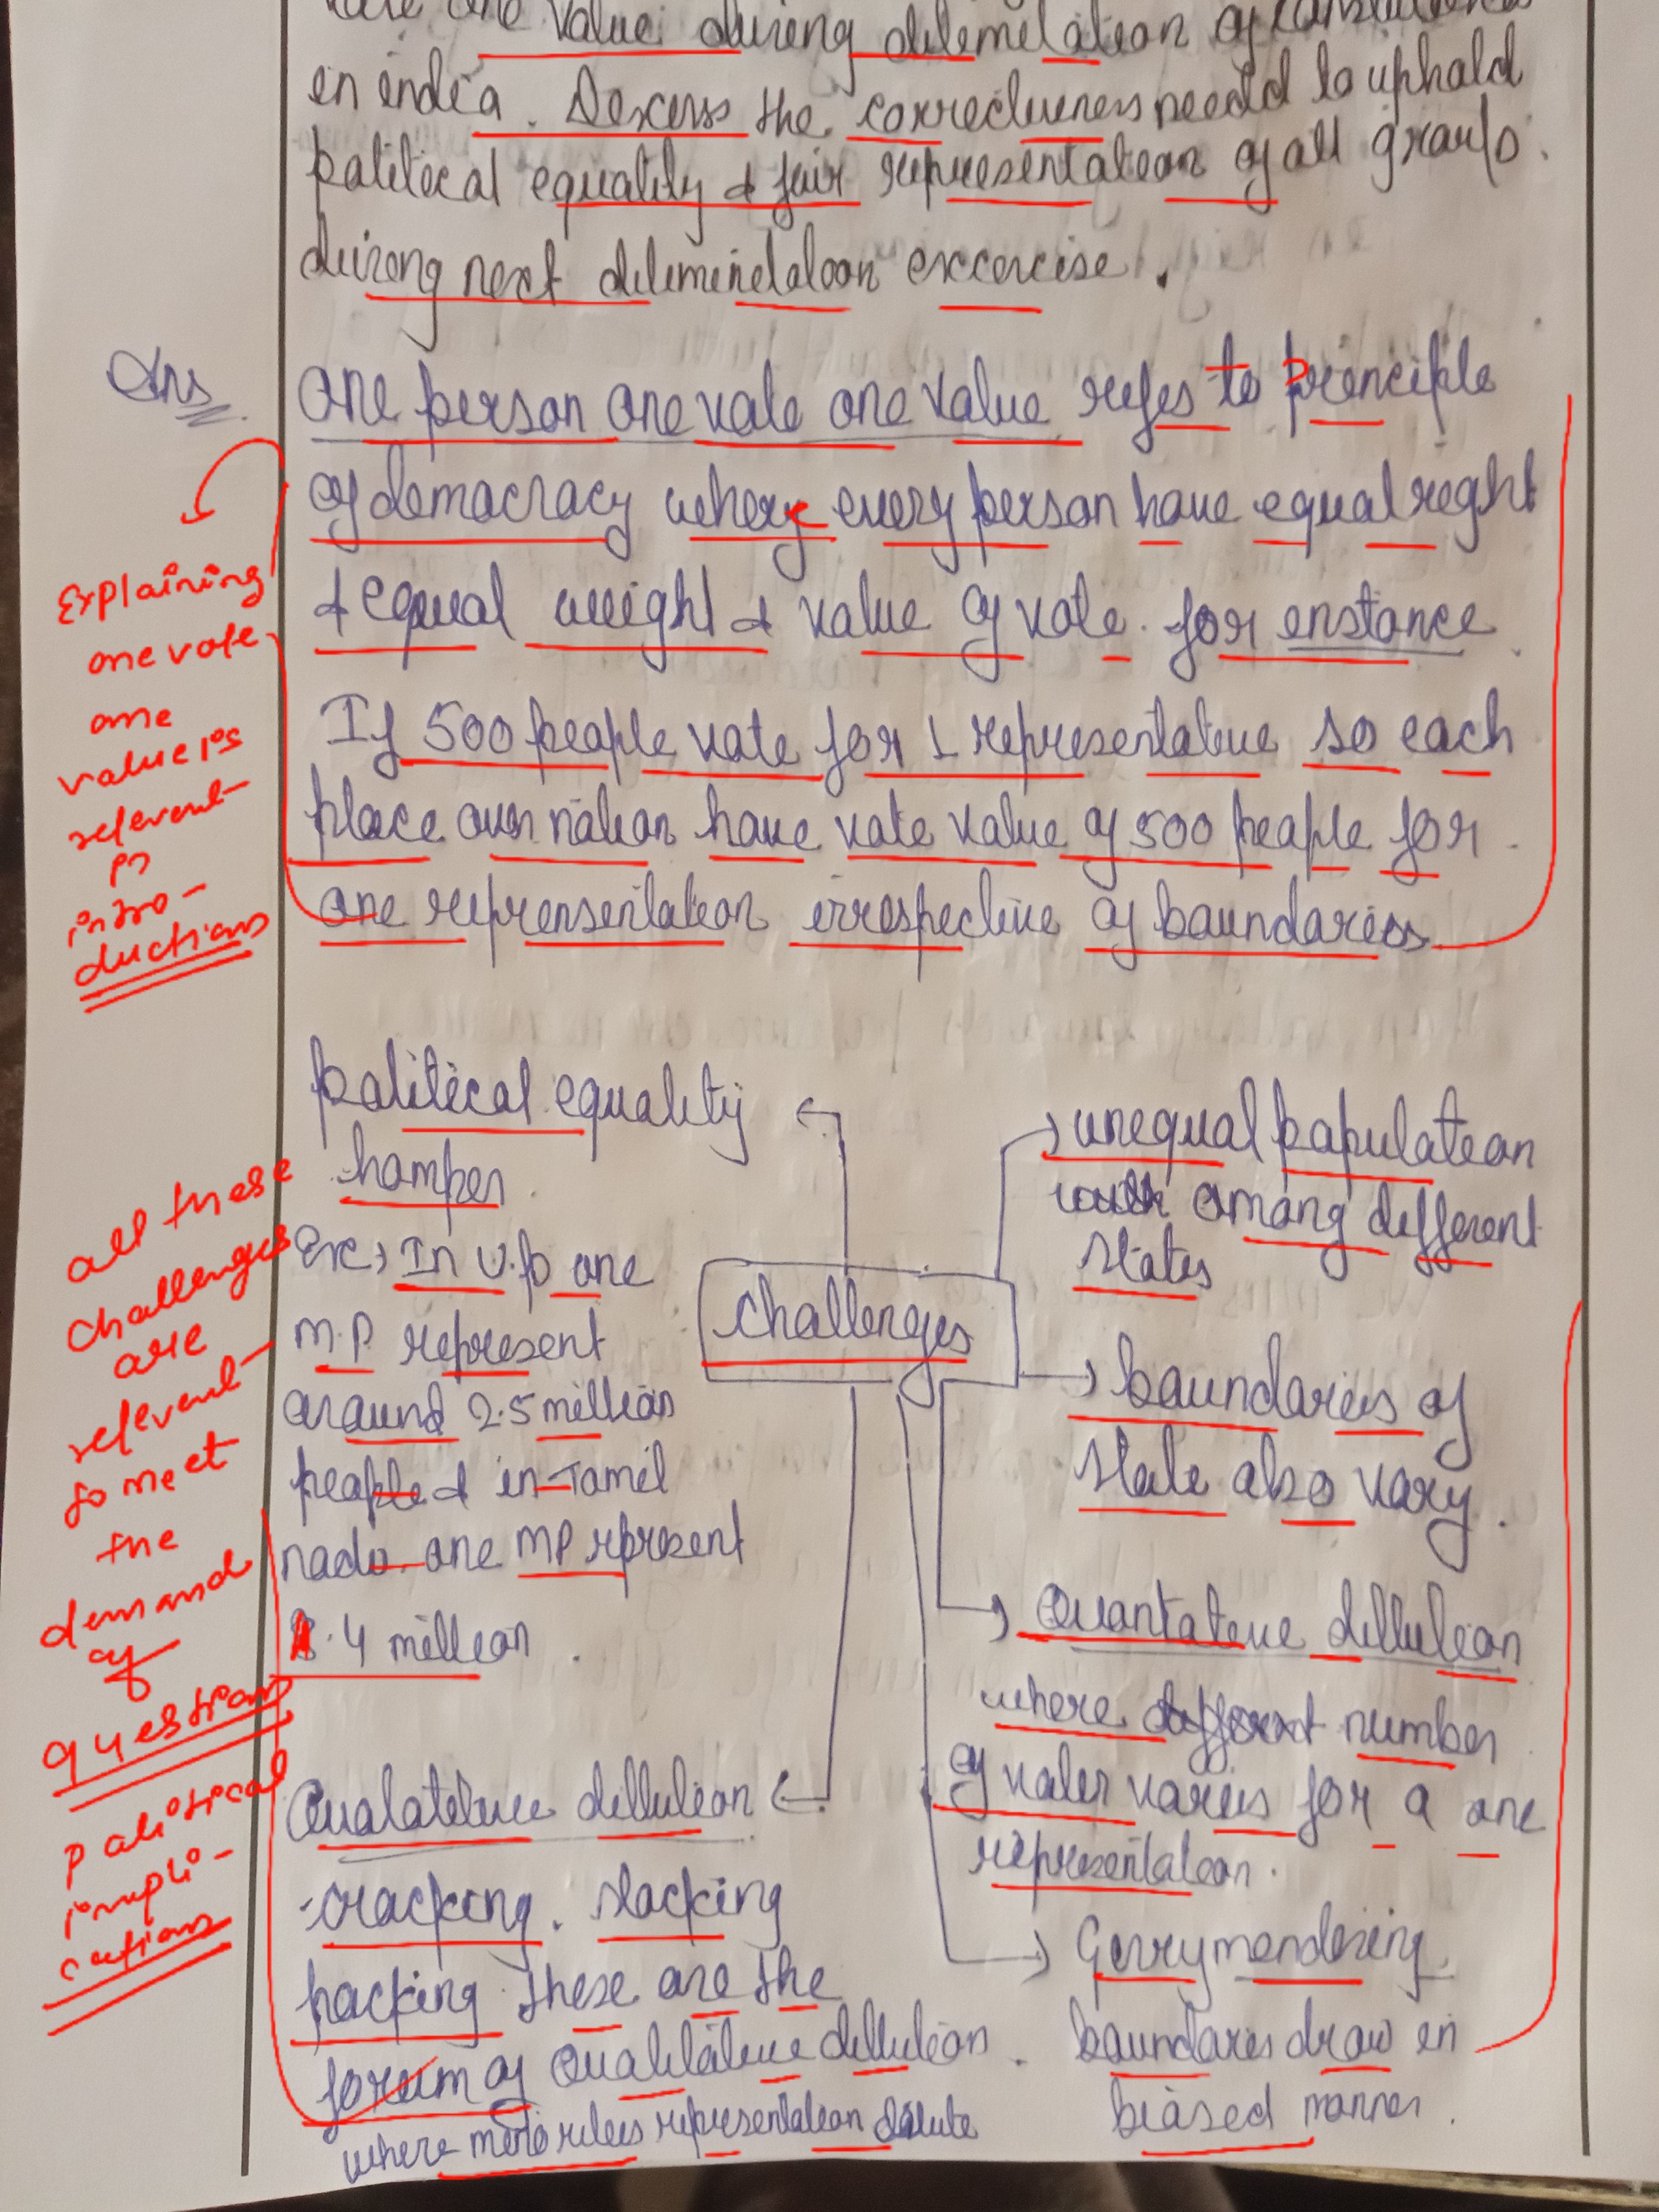 one value during delemelation of
en endea. Descuss the correcliveness needd to uphold
political equality & fair representateon of all groups.
during next delemenelation excercise.
Ans
one person one vote one value refes to Prenciple
of democracy where every person have equal reght
& equal weight & value of vote. for enstance.
If 500 people vote for 1 representative so each
place over nation have vote value of 500 people for
one reprensentateon irrespective of boundaries
Explaining
one vote
one
value is
relevent
in
intro-
ductions
political equality
hamper.
Ex, In U.P one
M.P. represent
around 2.5 million
people & in Tamil
nadu one MP rpresent
1.4 milleon.
Challenges
unequal populateon
among defferent
states
boundaries of
state also vary.
Quantateve dillulion
where different number
of voter varies for a one
representateon.
Gerrymendering
boundares draw in
biased manner.
Qualateteve dillulion
cracking. stacking
packing. these are the
forum of Qualitative dillulion.
where minorities representation dilute
all these
challenges
are
relevent
to meet
the
demand
of
questions
Political
impli-
cations